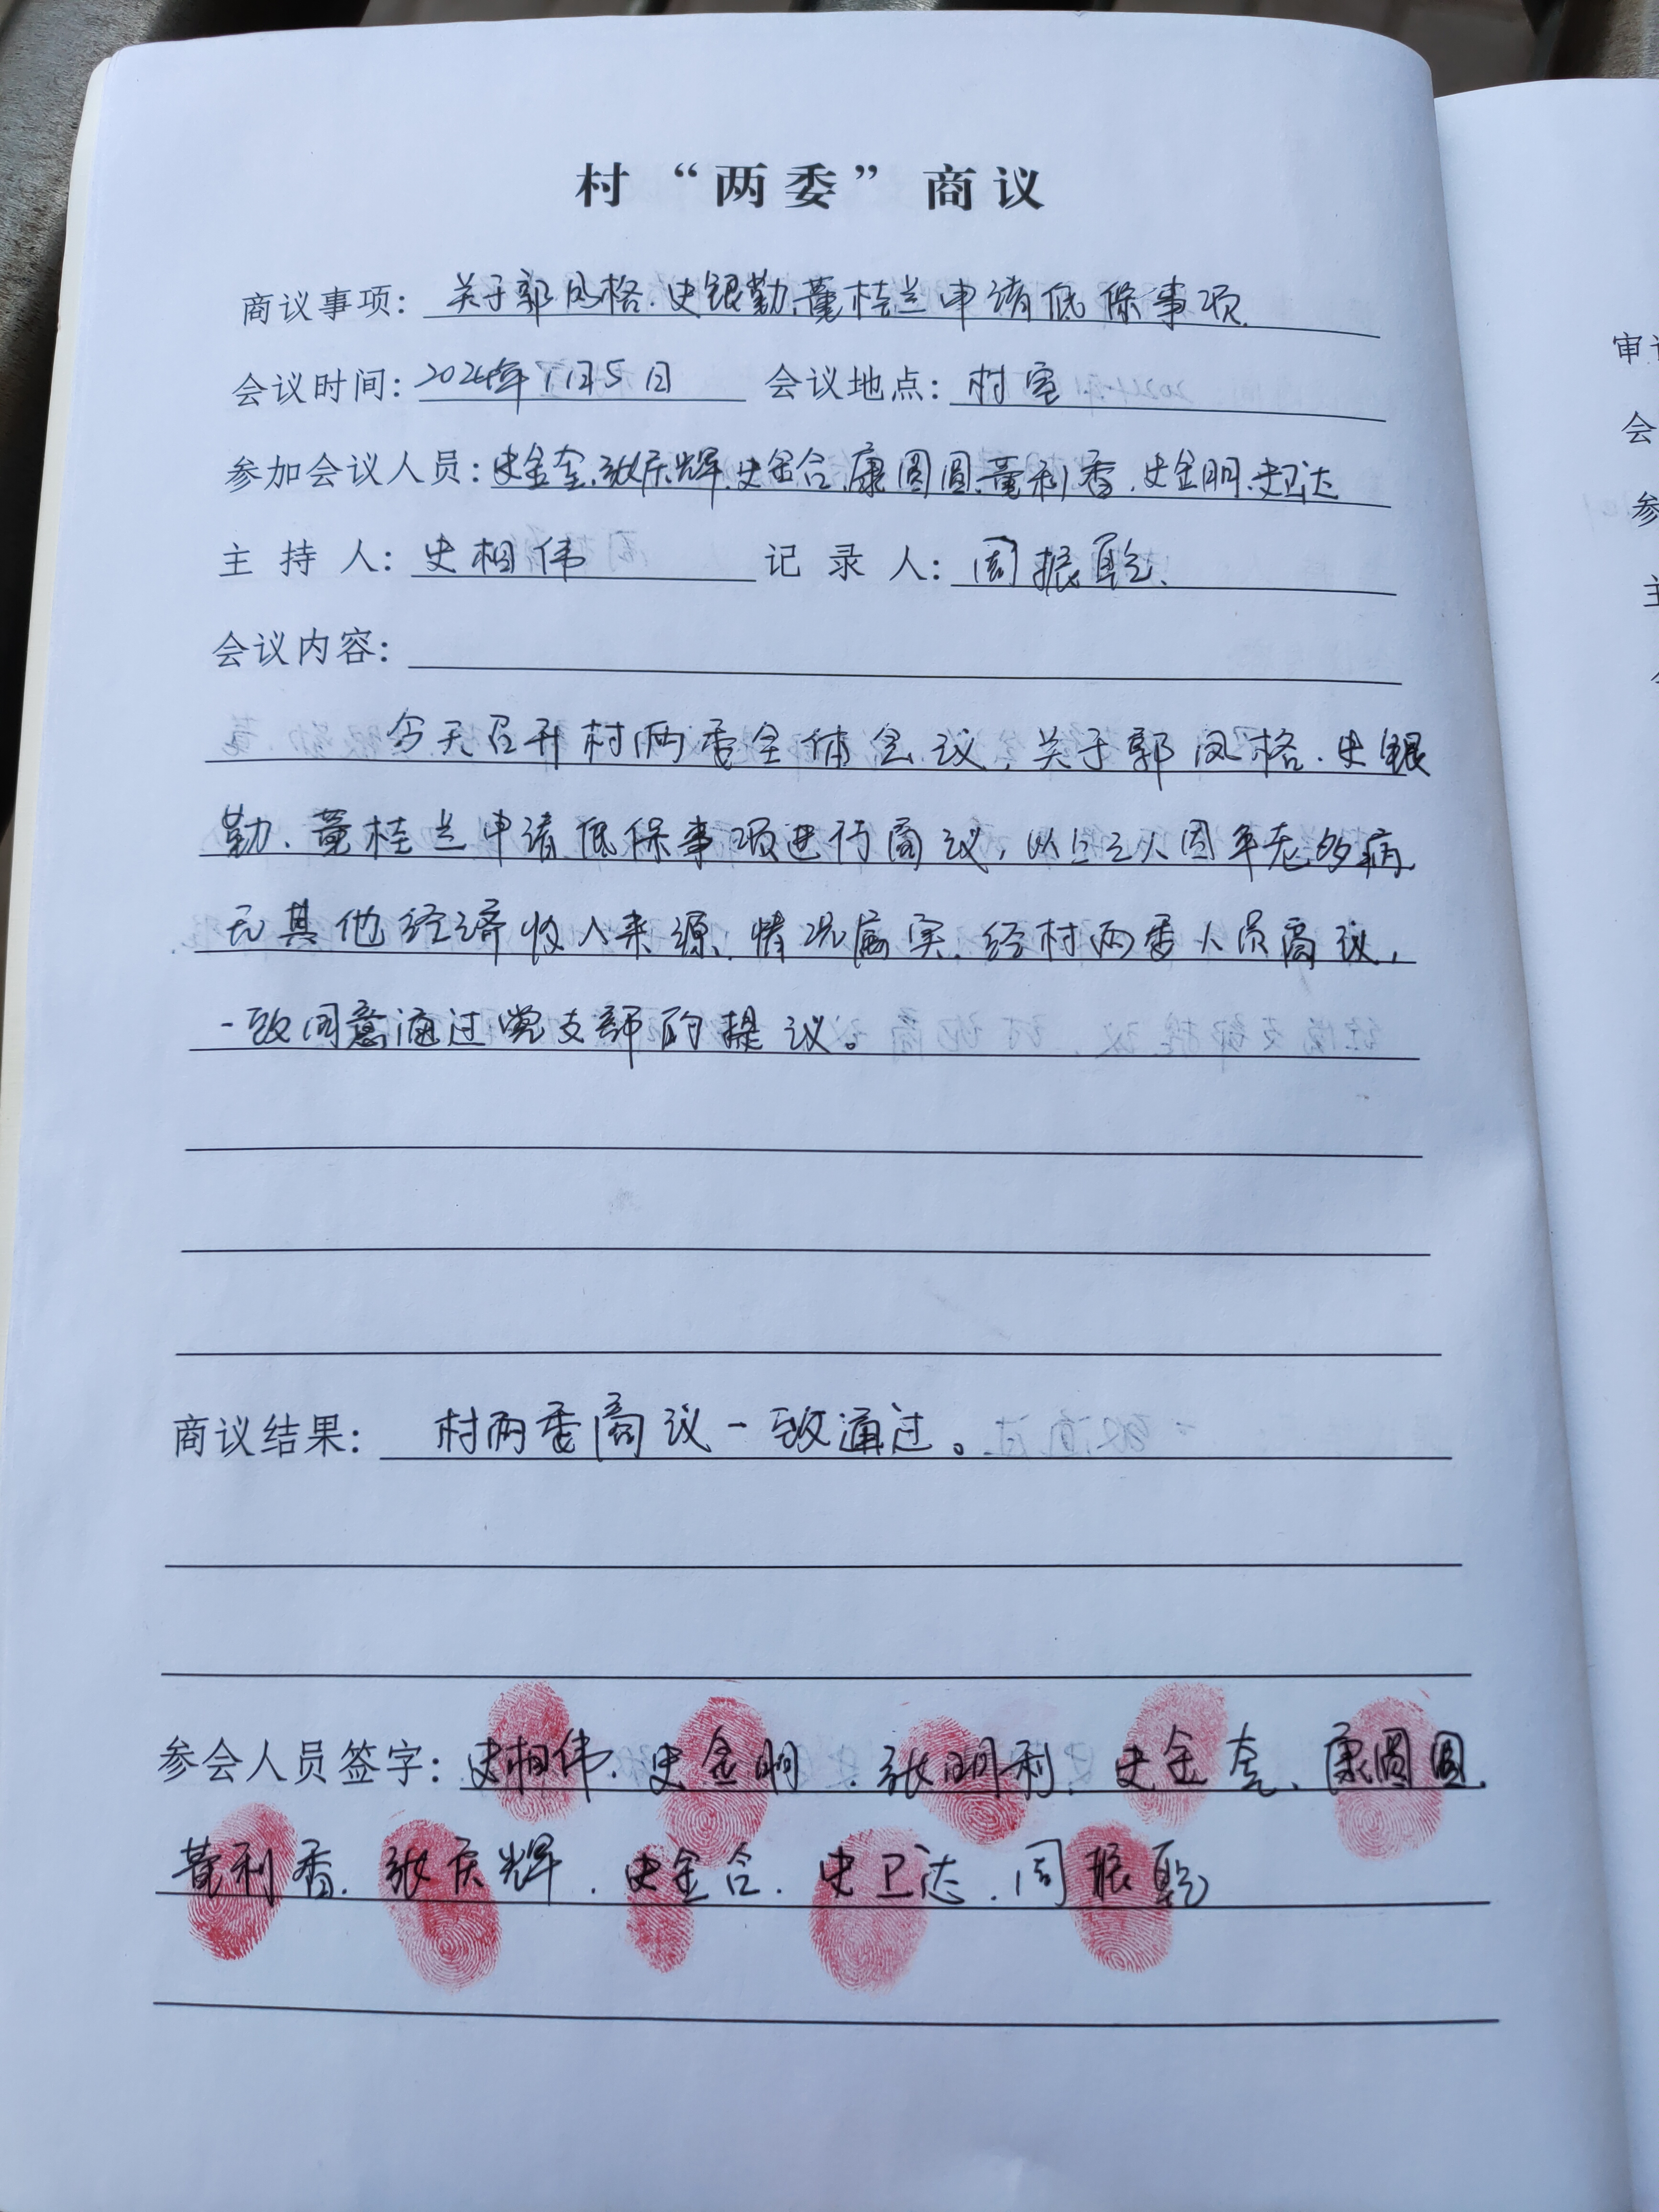 村“两委”商议
商议事项：关于郭凤格、史银勤、董桂兰申请低保事项.
会议时间：2024年1月5日 会议地点：村室
参加会议人员：史金奎、张庆辉、史金合、康圆圆、董利香、史金明、史卫达
主持人：史相伟 记录人：周振
会议内容：
今天召开村两委全体会议，关于郭凤格、史银
勤、董桂兰申请低保事项进行商议，以上三人因年老多病
无其他经济收入来源，情况属实，经村两委人员商议，
一致同意通过党支部的提议。
商议结果：村两委商议一致通过。
参会人员签字：史相伟、史金明、张明利、史金奎、康圆圆、
董利香、张庆辉、史金合、史卫达、周振
审
会
参
主